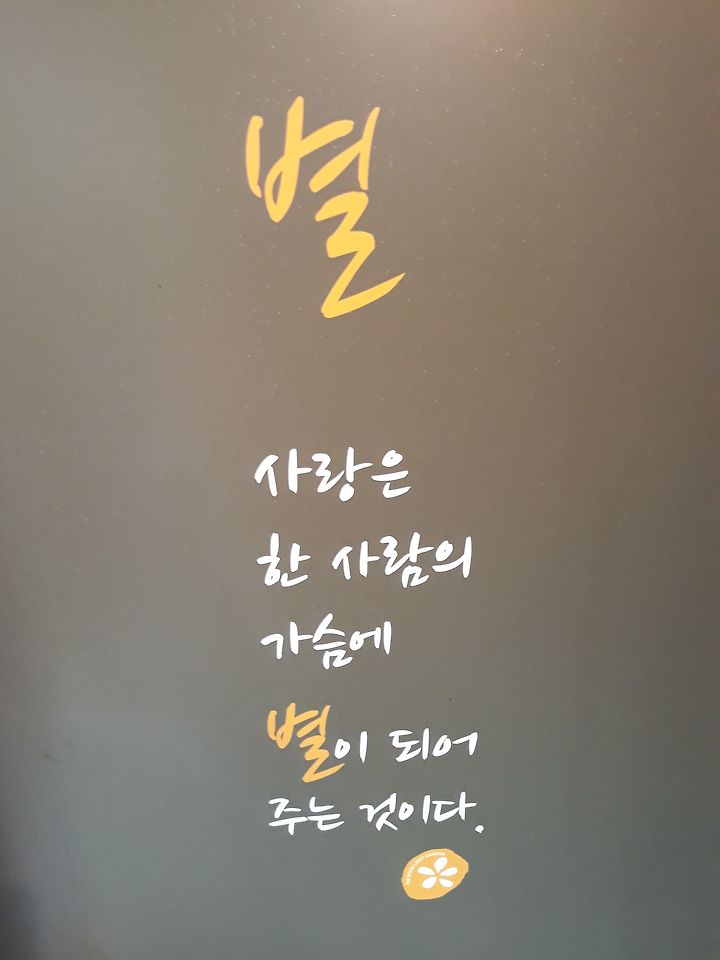 별
사랑은
한 사람의
가슴에
별이 되어
주는 것이다.